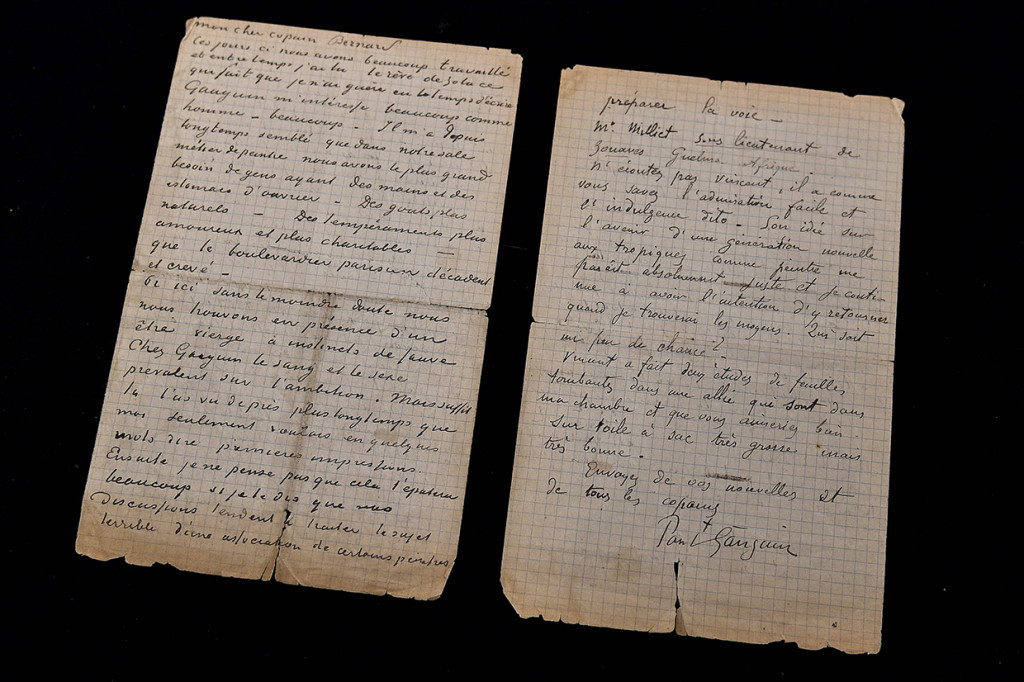 mon cher copain Bernard
Ces jours ci nous avons beaucoup travaillé
et entretemps j'ai lu le rêve de Zola ce
qui fait que je n'ai guère eu le temps d'écrire
Gauguin m'intéresse beaucoup comme
homme – beaucoup – Il m'a depuis
longtemps semblé que dans notre sale
métier de peintre nous avons le plus grand
besoin de gens ayant des mains et des
estomacs d'ouvrier – Des gouts plus
naturels – Des temperaments plus
amoureux et plus charitables –
que le boulevardier parisien décadent
et crevé –
Or ici sans le moindre doute nous
nous trouvons en présence d'un
être vierge à instincts de fauve
Chez Gauguin le sang et le sexe
prevalent sur l'ambition. Mais suffit
tu l'as vu de près plus longtemps que
moi seulement voulais en quelques
mots dire premieres impressions
Ensuite je ne pense pas que cela t'épatera
beaucoup si je te dis que nos
discussions tendent à traiter le sujet
terrible d'une association de certains peintres
préparer la voie –
Mr. Milliet sous lieutenant de
zouaves Guelma Afrique.
N'écoutez pas vincent, il a comme
vous savez l'admiration facile et
l'indulgence dito – Son idée sur
l'avenir d'une génération nouvelle
aux tropiques comme peintre me
paraît absolument juste et je conti-
nue à avoir l'intention d'y retourner
quand je trouverai les moyens. Qui sait
un peu de chance ? –
Vincent a fait deux études de feuilles
tombantes dans une allée qui sont dans
ma chambre et que vous aimeriez bien.
Sur toile à sac très grosse mais
très bonne –
Envoyez de vos nouvelles et
de tous les copains
Paul Gauguin